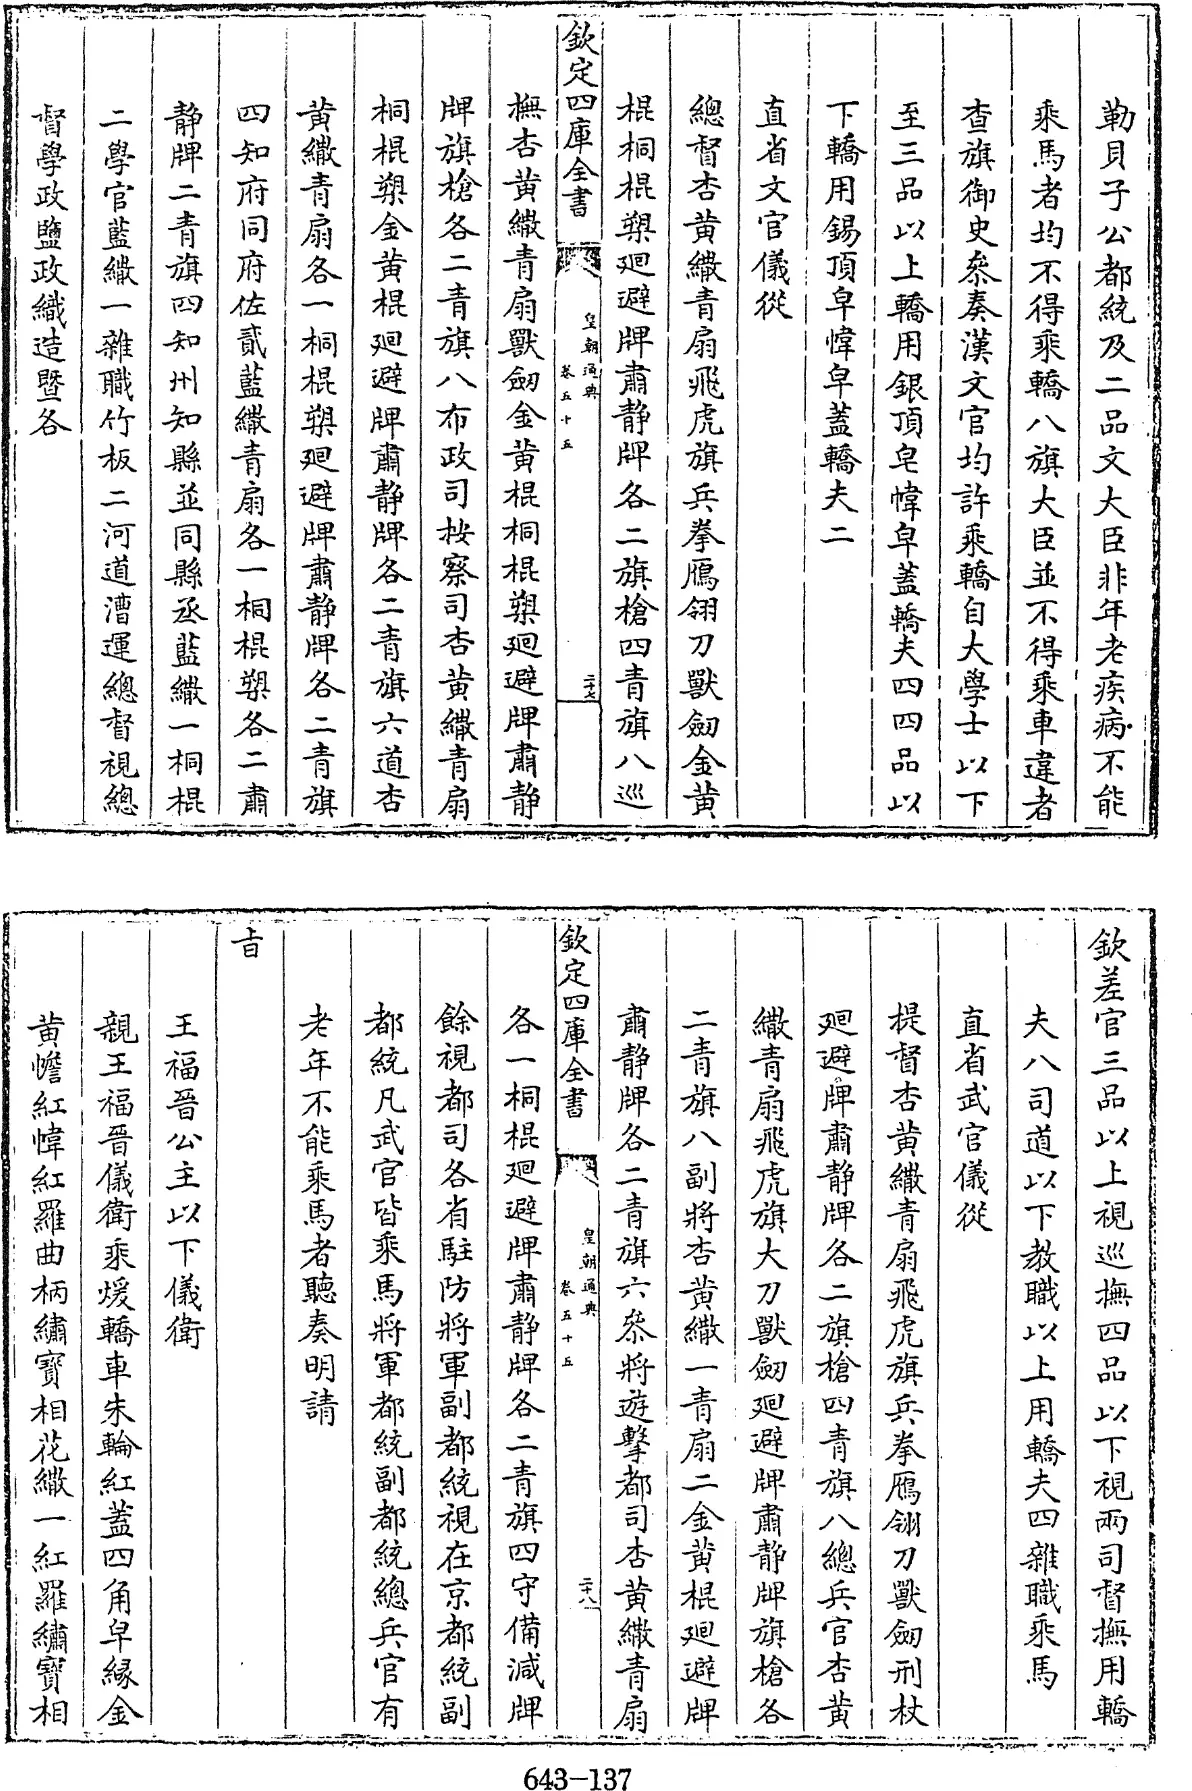 勒貝子公都統及二品文大臣非年老疾病不能
乘馬者均不得乘轎八旗大臣並不得乘車違者
查旗御史叅奏漢文官均許乘轎自大學士以下
至三品以上轎用銀頂皂幃皁蓋轎夫四四品以
下轎用錫頂皁幃皁蓋轎夫二
直省文官儀從
總督杏黄繖青扇飛虎旗兵拳鴈翎刀獸劒金黄
棍桐棍槊廻避牌肅静牌各二旗槍四青旗八巡
欽定四庫全書
皇朝通典
卷五十五
二十七
撫杏黄繖青扇獸劒金黄棍桐棍槊廻避牌肅静
牌旗槍各二青旗八布政司按察司杏黄繖青扇
桐棍槊金黄棍廻避牌肅静牌各二青旗六道杏
黄繖青扇各一桐棍槊廻避牌肅静牌各二青旗
四知府同府佐貳藍繖青扇各一桐棍槊各二肅
静牌二青旗四知州知縣並同縣丞藍繖一桐棍
二學官藍繖一雜職竹板二河道漕運總督視總
督學政鹽政織造暨各
欽差官三品以上視巡撫四品以下視兩司督撫用轎
夫八司道以下教職以上用轎夫四雜職乘馬
直省武官儀從
提督杏黄繖青扇飛虎旗兵拳鴈翎刀獸劒刑杖
廻避牌肅静牌各二旗槍四青旗八總兵官杏黄
繖青扇飛虎旗大刀獸劒廻避牌肅静牌旗槍各
二青旗八副將杏黄繖一青扇二金黄棍廻避牌
肅静牌各二青旗六叅將遊擊都司杏黄繖青扇
欽定四庫全書
皇朝通典
卷五十五
二十八
各一桐棍廻避牌肅静牌各二青旗四守備減牌
餘視都司各省駐防將軍副都統視在京都統副
都統凡武官皆乘馬將軍都統副都統總兵官有
老年不能乘馬者聽奏明請
㫖
王福晉公主以下儀衛
親王福晉儀衛乘煖轎車朱輪紅蓋四角皁緣金
黄幨紅幃紅羅曲柄繡寳相花繖一紅羅繡寳相
643-137